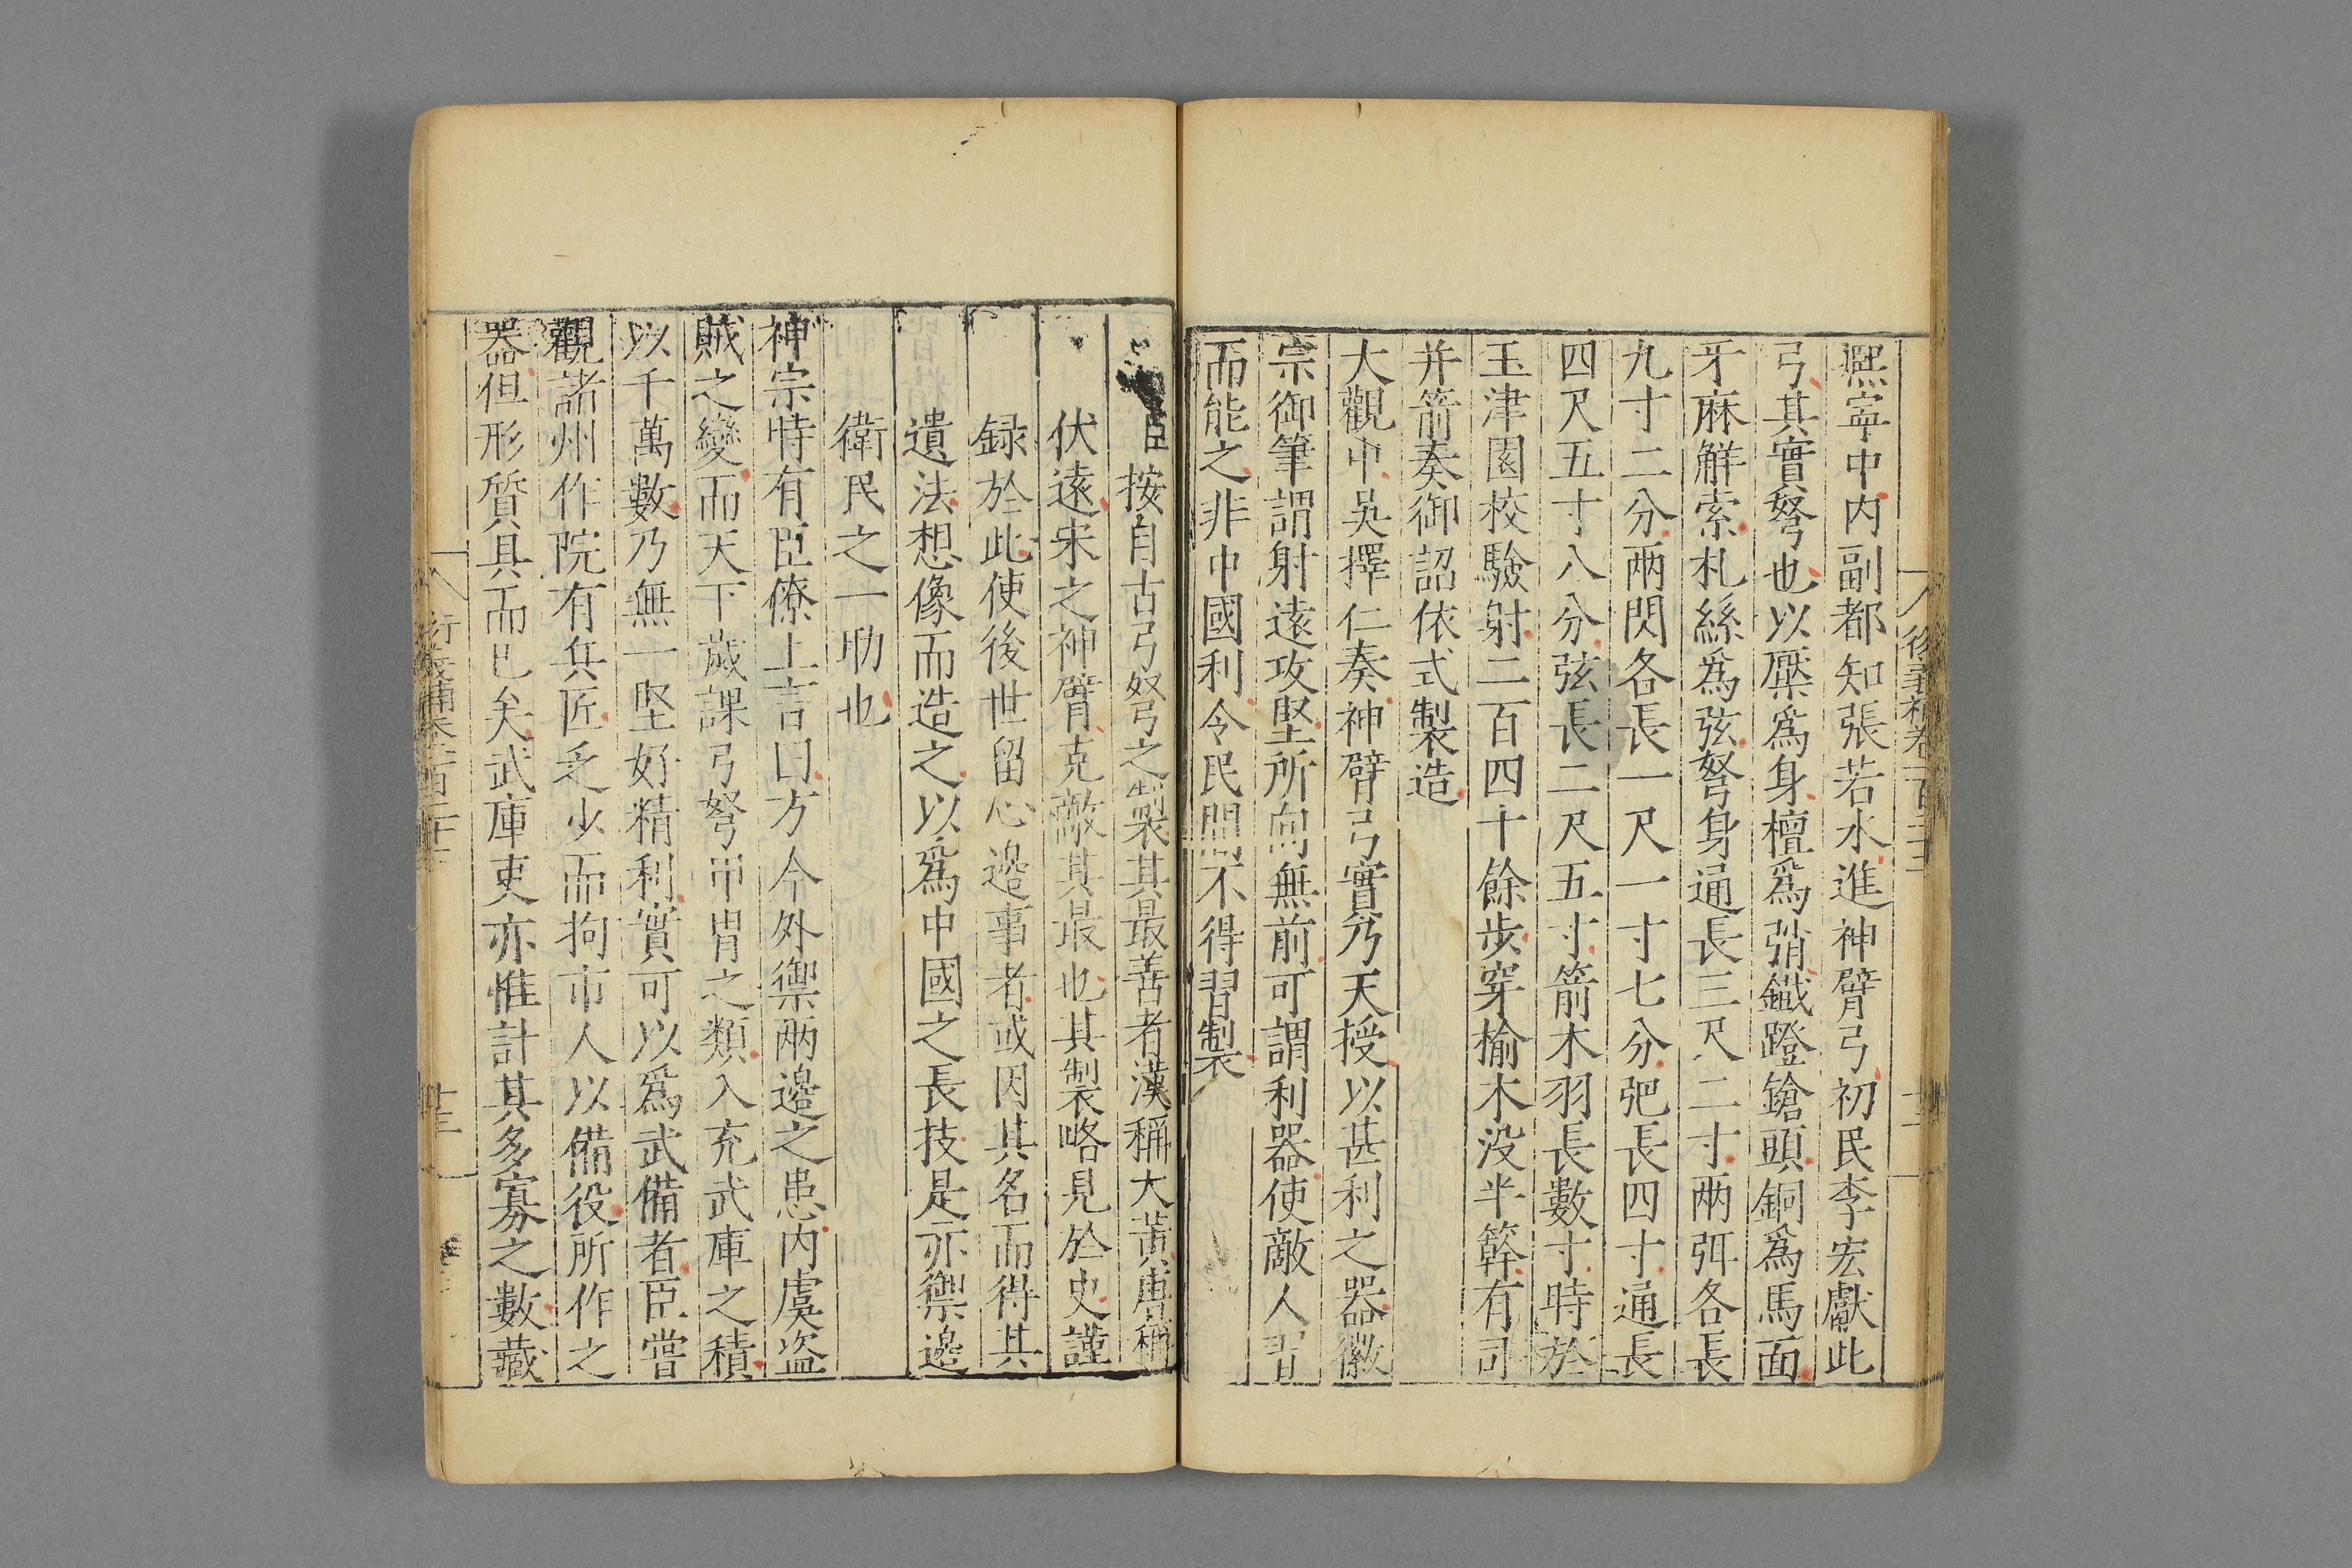 熈寧中内副都知張若水進神臂弓初民李宏獻此
弓其實弩也以檿爲身檀爲弰鐵蹬鎗頭銅爲馬面
牙麻觧索札絲爲弦弩身通長三尺二寸兩弭各長
九寸二分兩閃各長一尺一寸七分弝長四寸通長
四尺五寸八分弦長二尺五寸箭木羽長數寸時於
玉津園校驗射二百四十餘步穿榆木没半簳有司
并箭奏御詔依式製造
大觀中吳擇仁奏神臂弓實乃天授以甚利之器徽
宗御筆謂射遠攻堅所向無前可謂利器使敵人習
而能之非中國利令民間不得習製
臣按自古弓弩弓之製其最善者漢稱大黃唐稱
伏遠宋之神臂克敵其最也其製略見於史謹
録於此使後世留心邉事者或因其名而得其
遺法想像而造之以爲中國之長技是亦禦邉
衛民之一助也
神宗時有臣僚上言曰方今外禦兩邉之患内虞盗
賊之變而天下歲課弓弩甲冑之類入充武庫之積
以千萬數乃無一堅好精利實可以爲武備者臣嘗
觀諸州作院有兵匠乏少而拘市人以備役所作之
器但形質具而已矣武庫吏亦惟計其多寡之數藏
衍義補卷一百二十二